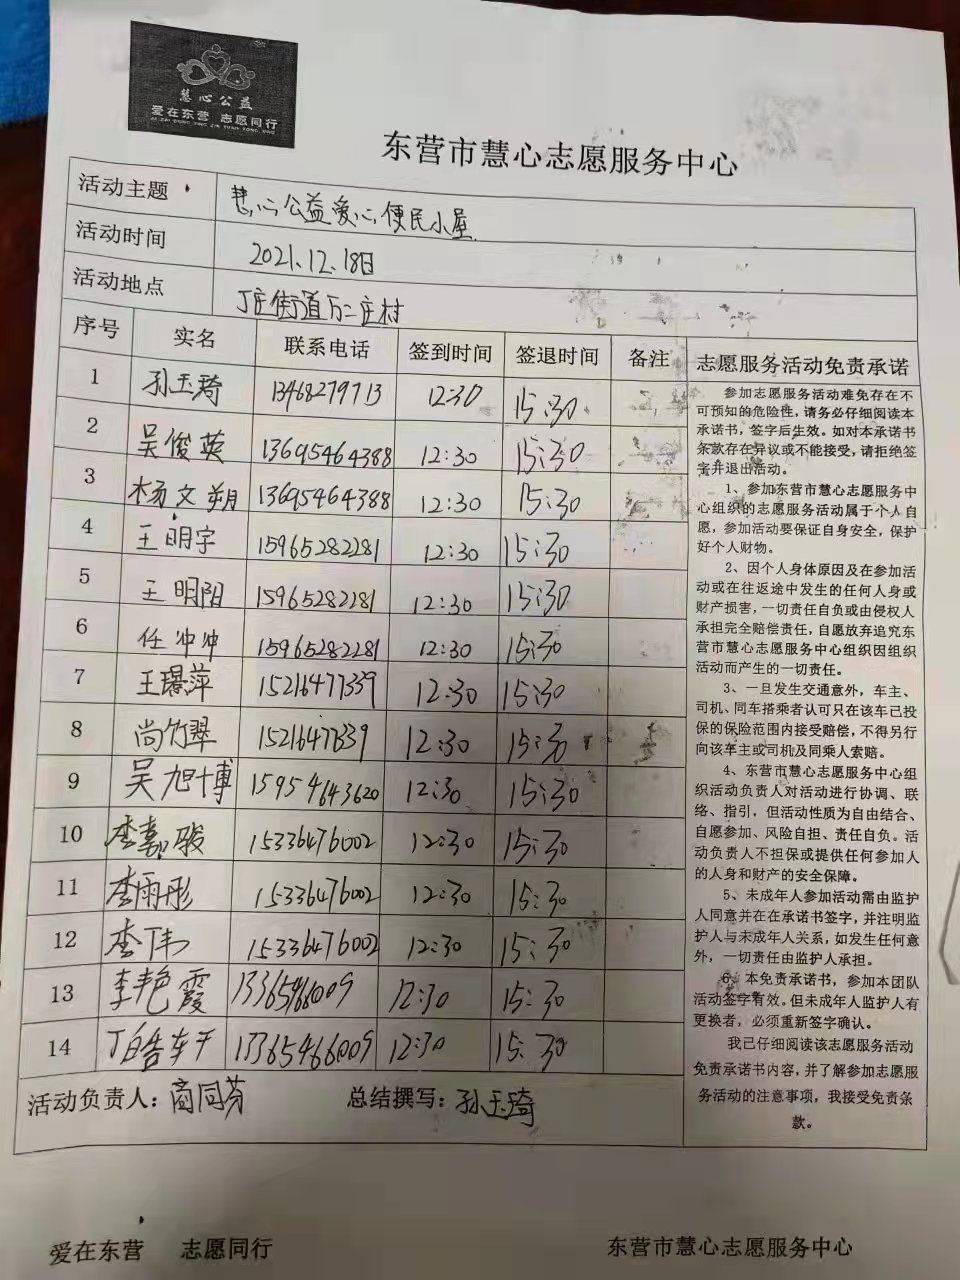 慧心公益
爱在东营 志愿同行
AI ZAI DONG YING ZHI YUAN TONG XING
东营市慧心志愿服务中心
活动主题 慧心公益爱心便民小屋
活动时间 2021.12.18日
活动地点 丁庄街道万二庄村
序号 实名 联系电话 签到时间 签退时间 备注
1 孙玉琦 13468279713 12:30 15:30
2 吴俊英 13695464388 12:30 15:30
3 杨文朔 13695464388 12:30 15:30
4 王明宇 15965282281 12:30 15:30
5 王明阳 15965282281 12:30 15:30
6 任冲冲 15965282281 12:30 15:30
7 王璟萍 15216477339 12:30 15:30
8 尚竹翠 15216477339 12:30 15:30
9 吴旭博 15954643620 12:30 15:30
10 李嘉骏 15336476002 12:30 15:30
11 李雨彤 15336476002 12:30 15:30
12 李伟 15336476002 12:30 15:30
13 李艳霞 13365466009 12:30 15:30
14 丁皓 13365466009 12:30 15:30
活动负责人：商同芬 总结撰写：孙玉琦
志愿服务活动免责承诺
参加志愿服务活动难免存在不
可预知的危险性，请务必仔细阅读本
承诺书，签字后生效。如对本承诺书
条款存在异议或不能接受，请拒绝签
字并退出活动。
1、参加东营市慧心志愿服务中
心组织的志愿服务活动属于个人自
愿，参加活动要保证自身安全，保护
好个人财物。
2、因个人身体原因及在参加活
动或在往返途中发生的任何人身或
财产损害，一切责任自负或由侵权人
承担完全赔偿责任，自愿放弃追究东
营市慧心志愿服务中心组织因组织
活动而产生的一切责任。
3、一旦发生交通意外，车主、
司机、同车搭乘者认可只在该车已投
保的保险范围内接受赔偿，不得另行
向该车主或司机及同乘人索赔。
4、东营市慧心志愿服务中心组
织活动负责人对活动进行协调、联
络、指引，但活动性质为自由结合、
自愿参加、风险自担、责任自负。活
动负责人不担保或提供任何参加人
的人身和财产的安全保障。
5、未成年人参加活动需由监护
人同意并在在承诺书签字，并注明监
护人与未成年人关系，如发生任何意
外，一切责任由监护人承担。
6、本免责承诺书，参加本团队
活动签字有效。但未成年人监护人有
更换者，必须重新签字确认。
我已仔细阅读该志愿服务活动
免责承诺书内容，并了解参加志愿服
务活动的注意事项，我接受免责条
款。
爱在东营 志愿同行 东营市慧心志愿服务中心